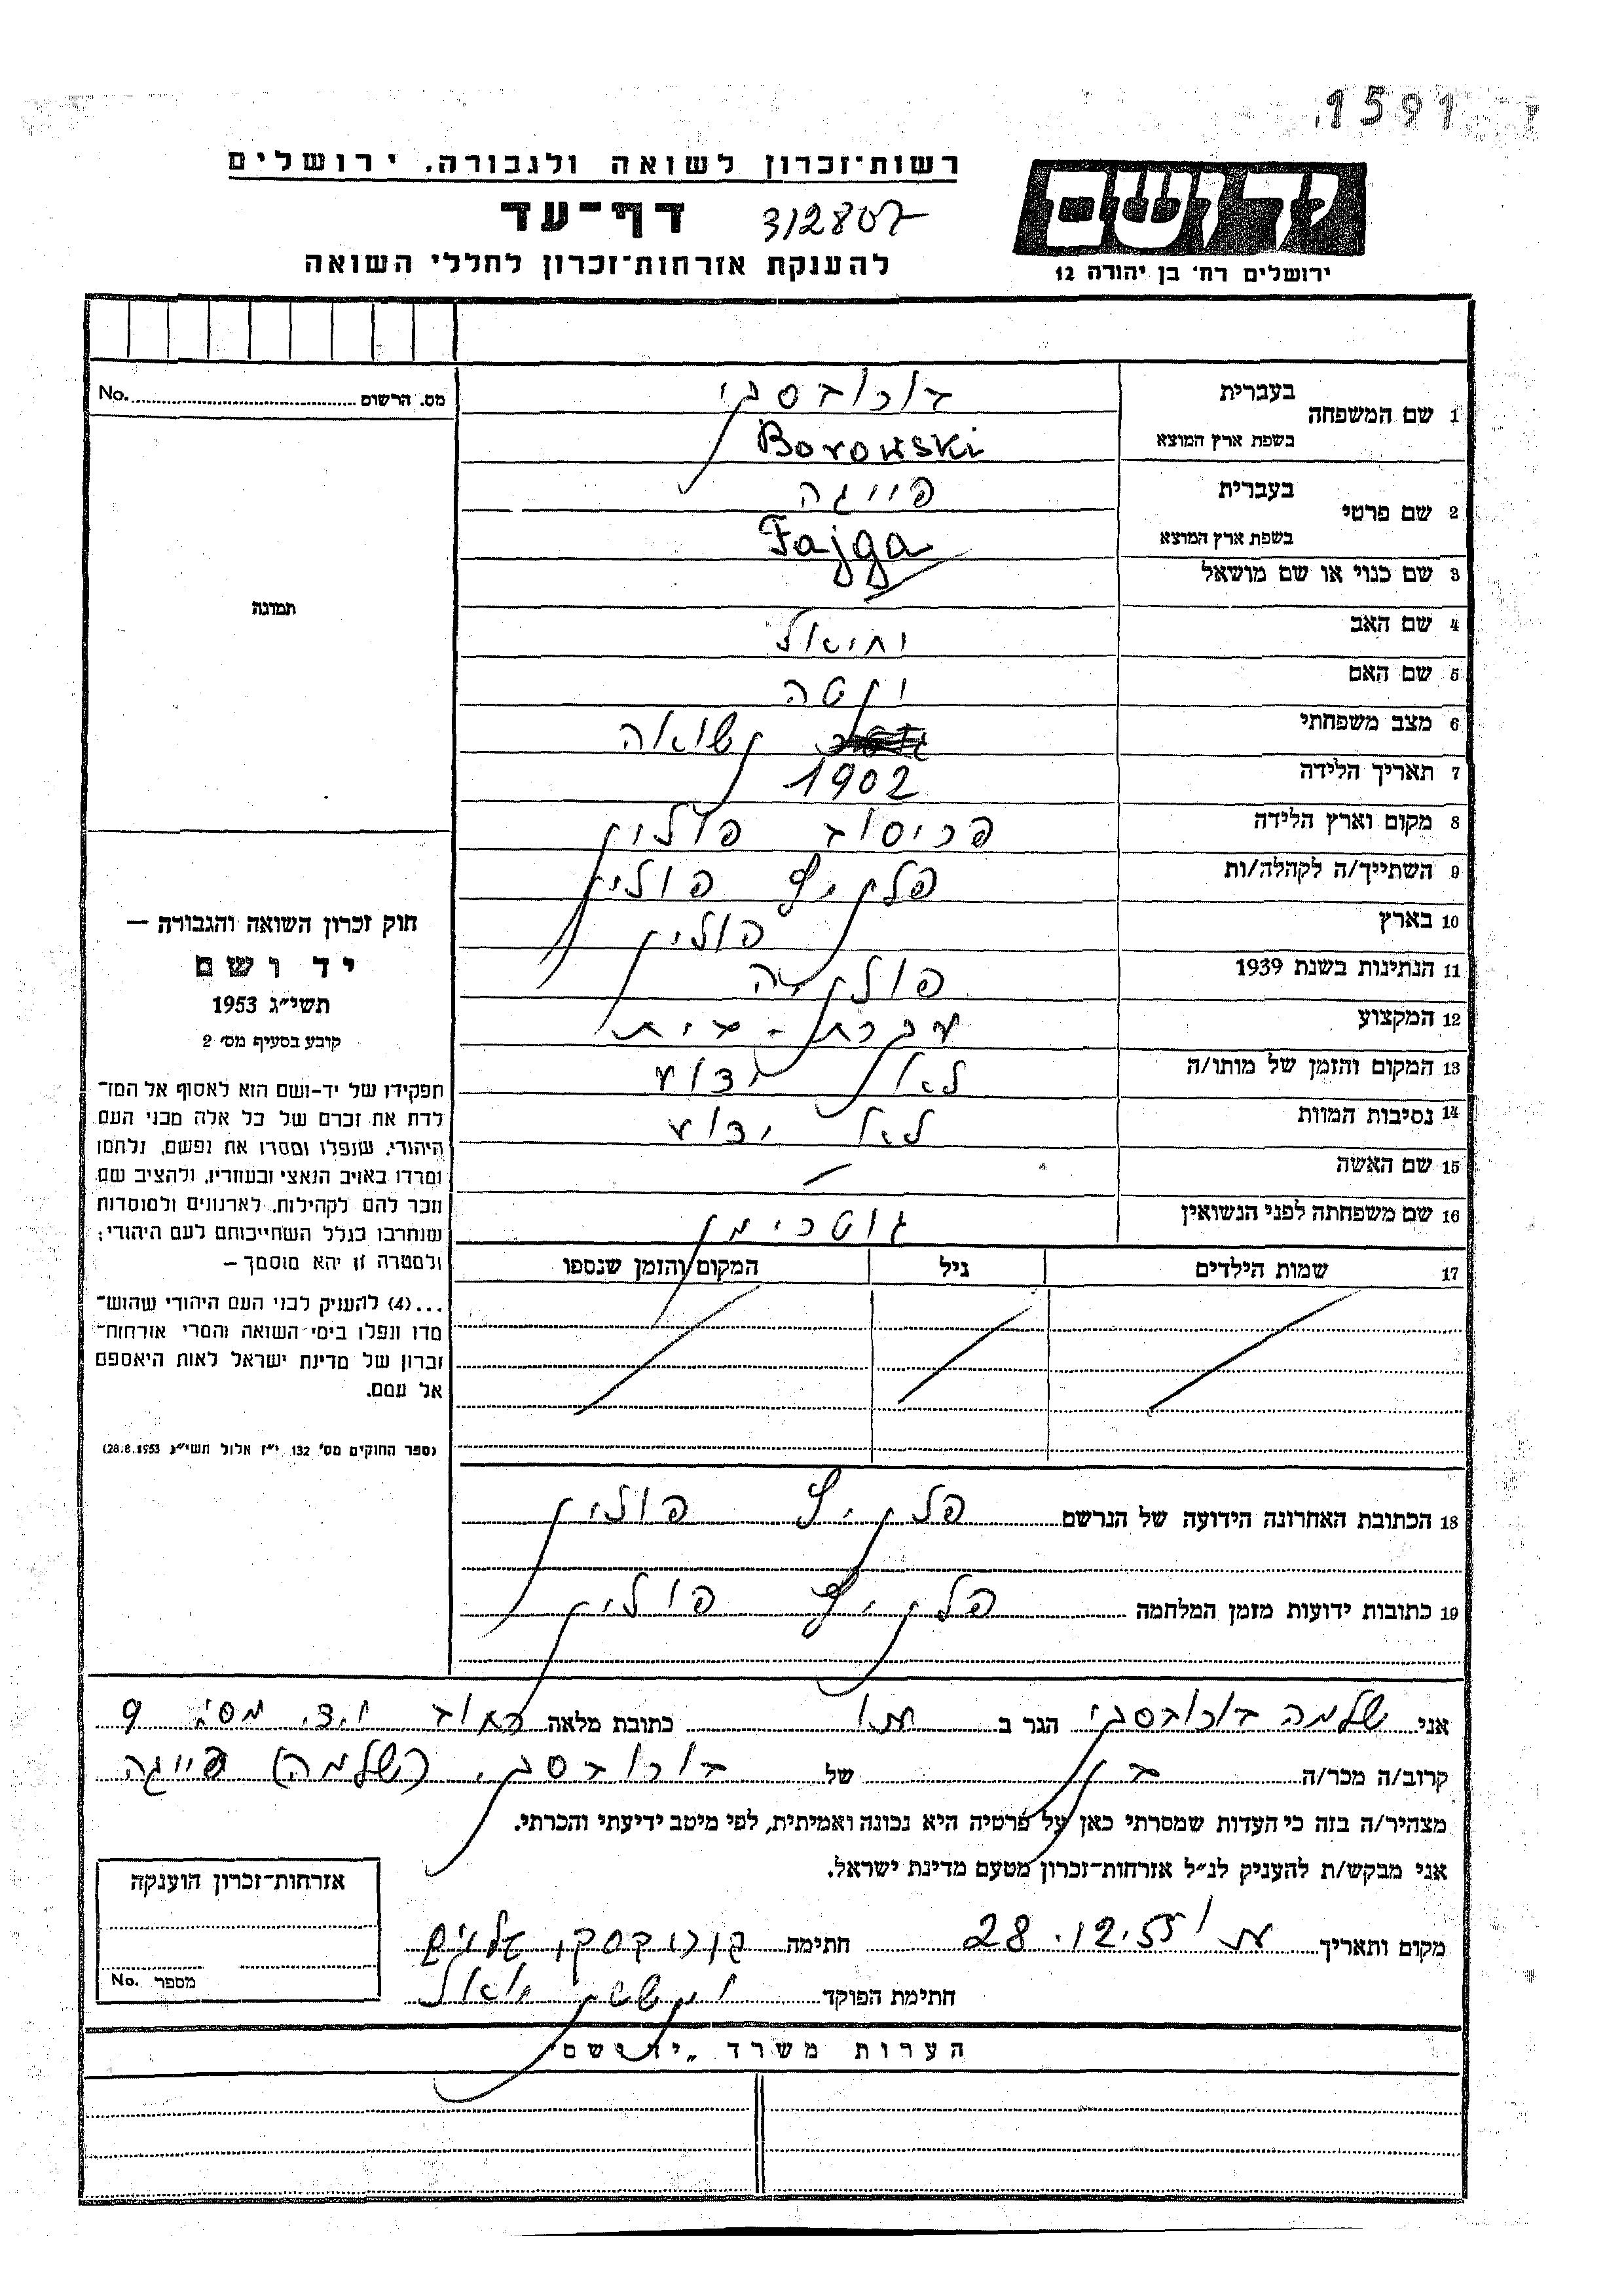 1591
רשות־זכרון לשואה ולגבורה, ירושלים
יד ושם
דף־עד 312807
ירושלים רח׳ בן יהודה 12
להענקת אזרחות־זכרון לחללי השואה
מס. הרשום No.
תמונה
1 שם המשפחה בעברית בורובסקי
בשפת ארץ המוצא Borowski
2 שם פרטי בעברית פייגה
בשפת ארץ המוצא Fajga
3 שם כנוי או שם מושאל
4 שם האב יחיאל
5 שם האם יטה
6 מצב משפחתי נשואה
7 תאריך הלידה 1902
8 מקום וארץ הלידה פולין
9 השתייך/ה לקהלה/ות פולין
10 בארץ פולין
11 הנתינות בשנת 1939 פולנייה
12 המקצוע עקרת-בית
13 המקום והזמן של מותו/ה לא ידוע
14 נסיבות המוות לא ידוע
15 שם האשה
16 שם משפחתה לפני הנשואין גוטרימן
17 שמות הילדים גיל המקום והזמן שנספו
חוק זכרון השואה והגבורה —
יד ושם
תשי״ג 1953
קובע בסעיף מס׳ 2
תפקידו של יד-ושם הוא לאסוף אל המו־
לדת את זכרם של כל אלה מבני העם
היהודי, שנפלו ומסרו את נפשם, נלחמו
ומרדו באויב הנאצי ובעוזריו, ולהציב שם
וזכר להם לקהילות, לארגונים ולמוסדות
שנחרבו בגלל השתייכותם לעם היהודי;
ולמטרה זו יהא מוסמך —
...(4) להעניק לבני העם היהודי שהוש־
מדו ונפלו בימי השואה והמרי אזרחות־
זכרון של מדינת ישראל לאות היאספם
אל עמם.
(ספר החוקים מס׳ 132, י״ז אלול תשי״ג 28.8.1953)
18 הכתובת האחרונה הידועה של הנרשם פולין
19 כתובות ידועות מזמן המלחמה פולין
אני שלמה בורובסקי הגר ב כתובת מלאה רחוב י.ד. מס׳ 9
קרוב/ה מכר/ה בן של בורובסקי (שלמה) פייגה
מצהיר/ה בזה כי העדות שמסרתי כאן על פרטיה היא נכונה ואמיתית, לפי מיטב ידיעתי והכרתי.
אני מבקש/ת להעניק לנ״ל אזרחות־זכרון מטעם מדינת ישראל.
מקום ותאריך 28.12.55 חתימה
חתימת הפוקד
אזרחות־זכרון הוענקה
מספר No.
הערות משרד „יד ושם"